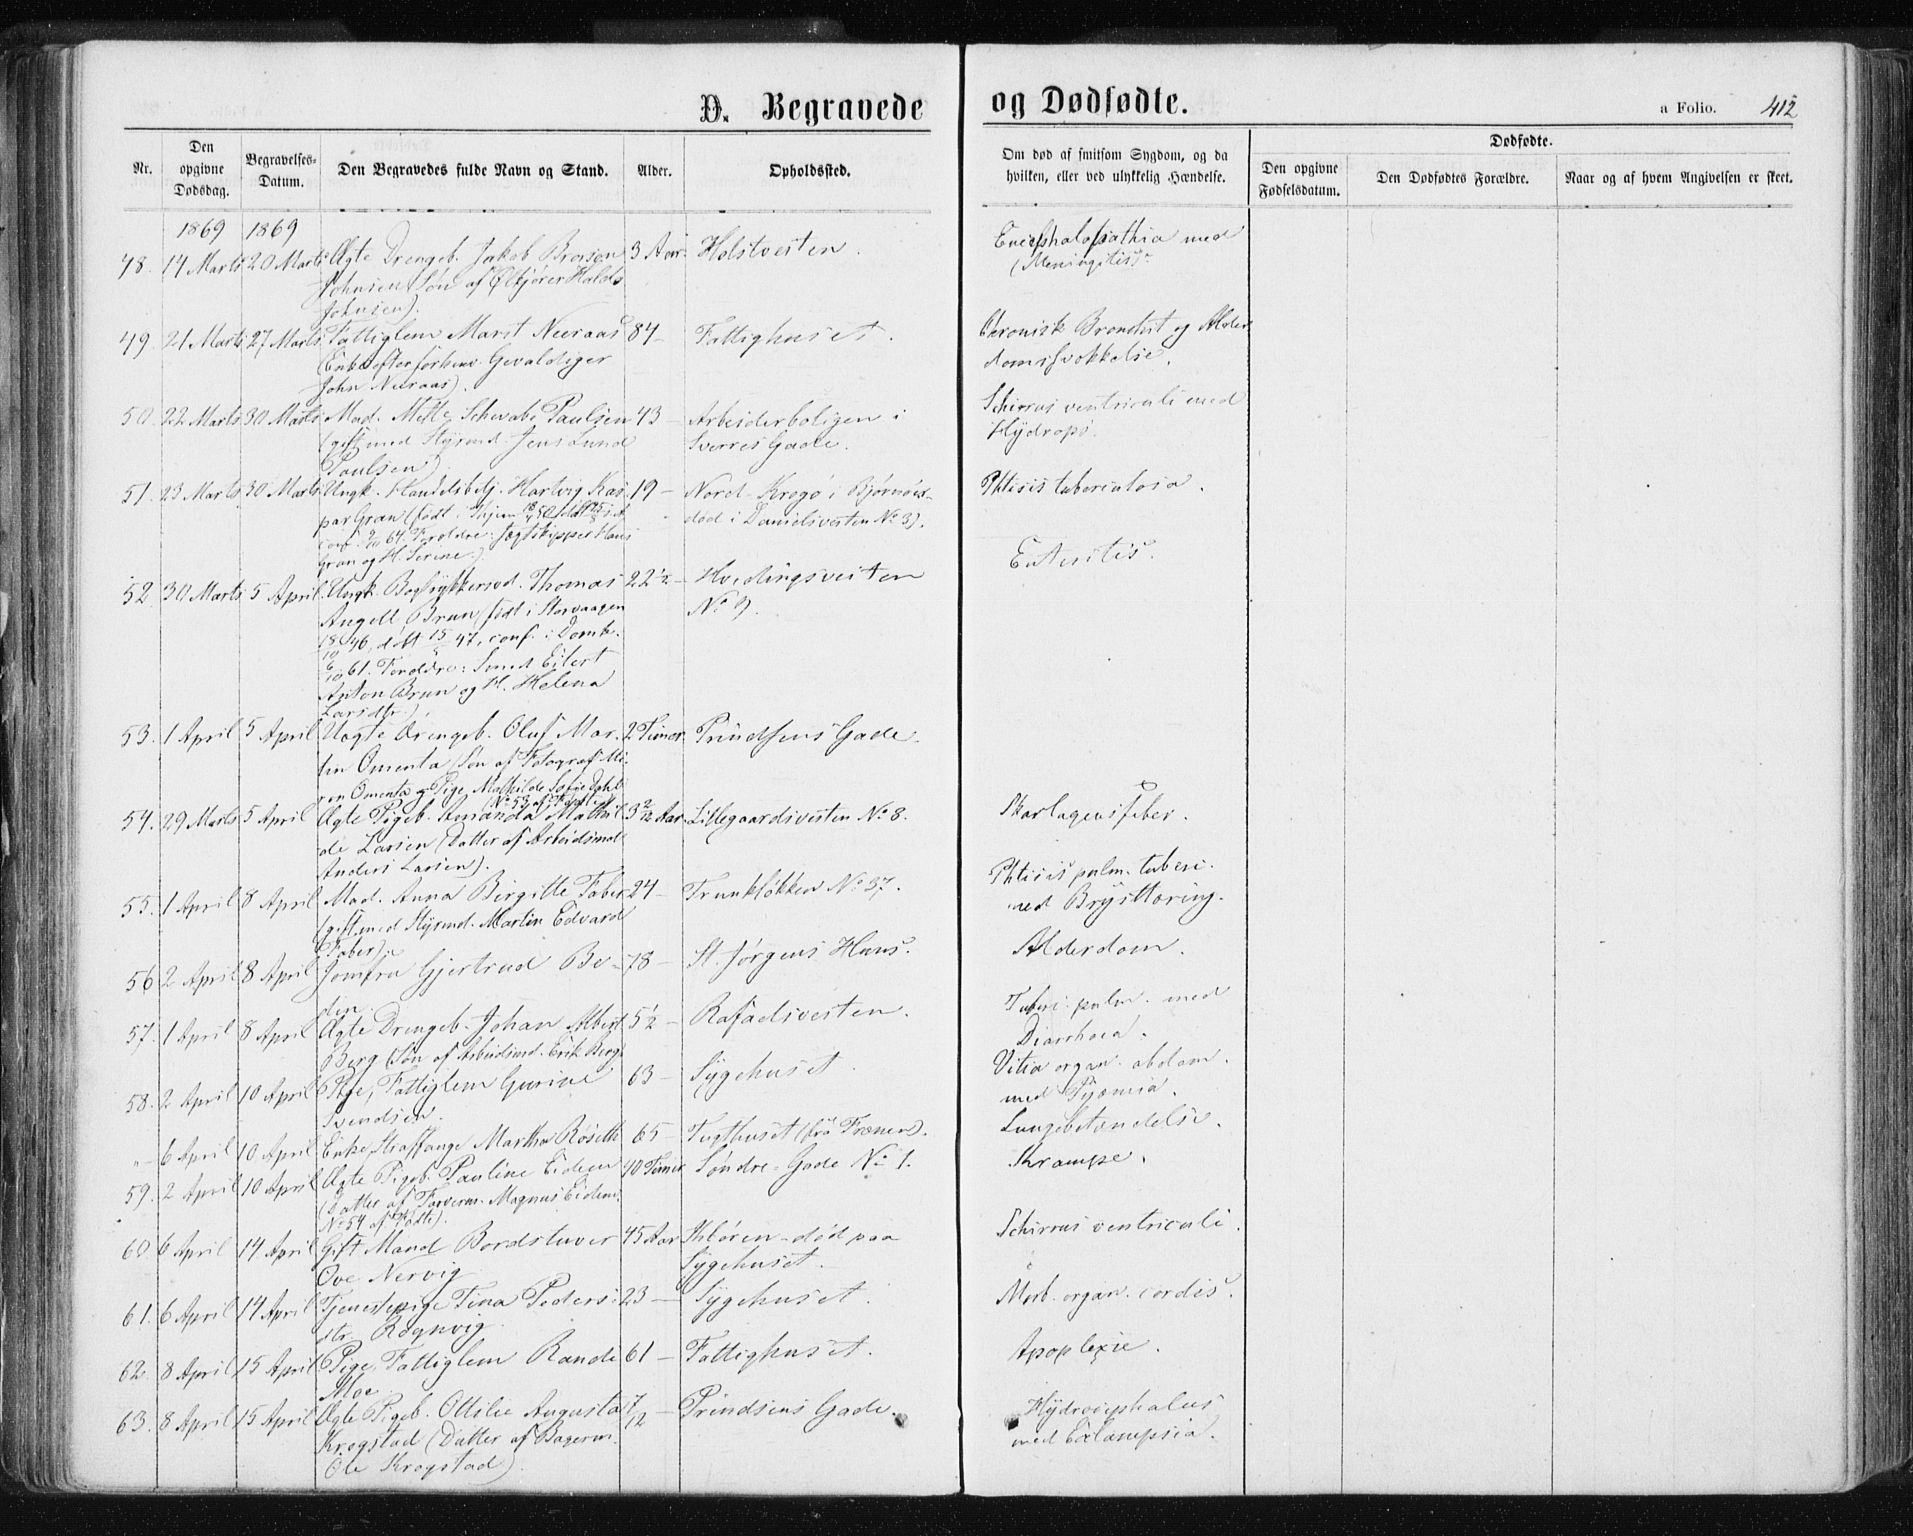 D. Begravede og Dødfødte.
a Folio. 412
Nr.
Den opgivne Dødsdag.
Begravelses-Datum.
Den Begravedes fulde Navn og Stand.
Alder.
Opholdssted.
Om død af smitsom Sygdom, og da hvilken, eller ved ulykkelig Hændelse.
Dødfødte.
Den opgivne Fødselsdatum.
Den Dødfødtes Forældre.
Naar og af hvem Angivelsen er skeet.
1869 1869
48. 14 Marts 20 Marts Ægte Drengeb. Jakob 3 Aar. Holstvesten. Encephalopathia med
Johnsen (Søn af Ølkjører Johnsen). (Meningitis)
49. 21 Marts 27 Marts Fattiglem Marit 84 – Fattighuset. Chronisk Bronchit og Alder
(Enke efter forhenv. Gevaldiger domssvækkelse.
John
50. 22 Marts 30 Marts Mad. Mette Schwabe Paulsen 43 – Arbeiderboligen i Schirrus ventriculi med
(gift med Styrmd. Jens Lund Sverres Gade. Hydrops.
Paulsen)
51. 23 Marts 30 Marts Ungk. Handelsbetj. Hartvig Kas- 19 – Nord-Krogø i Bjørnør – Phtisis tuberculosa.
par Gran (født i død i Danielsvesten No 3).
conf. 64. Forældre: Jægtskipper Hans
Gran og H. Serine.)
52. 30 Marts 5 April Ungk. Bogtrykkersvd. Thomas 22½ – Hvedingsvesten Enteritis.
Angell Brun (født i Storvaagen No 9.
18/10 46, døbt 15/5 47, conf. i Domk.
6/10 61. Forældre: Smed Eilert
Anton Brun og H. Helena
Larsdtr.)
53. 1 April 5 April Uægte Drengeb. Oluf Mar- 2 Timer Prindsens Gade.
tin Omenta (Søn af Fotograf
Omenta og Pige Mathilde Sofie Dahl
(No 53 af Fødte).
54. 29 Marts 5 April Ægte Pigeb. Amanda Mathil- 3 2/12 Aar Lillegaardsvesten No 8. Skarlagensfeber.
de Larsen (Datter af Arbeidsmd.
Anders Larsen).
55. 1 April 8 April Mad. Anna Birgitte Faber 24 – Trunkløkken No 37. Phtisis pulm. tuberc.
(gift med Styrmd. Martin Edvard ved Brysttæring.
Faber).
56. 2 April 8 April Jomfru Gjertrud Bo- 78 – St. Jørgens Huus. Alderdom.
din
57. 1 April 8 April Ægte Drengeb. Johan Albert 5½ – Tuberc. pulm. med
Berg (Søn af Arbeidsmd. Erik Berg) Diarrhoea.
58. 2 April 10 April Pige, Fattiglem Gurine 63 – Sygehuset. Vitia organ. abdom.
Svendsen. med Pyæmia.
„ – 6 April 10 April Enke Straffange Martha Røseth 65 – Tugthuset (fra Frænen). Lungebetændelse.
59. 2 April 10 April Ægte Pigeb. Pauline Eidem 40 Timer Søndre-Gade No 1. Krampe.
(Datter af Farverm. Magnus Eidem.
No 54 af Fødte).
60. 6 April 14 April Gift Mand Bordstuver 45 Aar – død paa Schirrus ventriculi.
Ove Nervig Sygehuset.
61. 6 April 14 April Tjenestepige Tina Peders- 23 – Sygehuset. Morb. organ. cordis.
dtr. Rognvig.
62. 8 April 15 April Pige, Fattiglem Randi 61 – Fattighuset. Apoplexie.
Moe
63. 8 April 15 April Ægte Pigeb. Ottilie Augusta 7/12 – Prindsens Gade. Hydrocephalus
Krogstad (Datter af Bagerm. med Eclampsia.
Ole Krogstad)